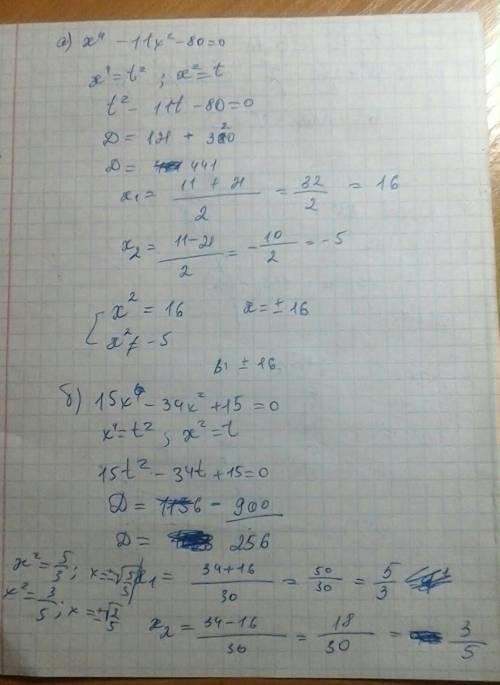 а) x⁴ - 11x² - 80 = 0
x⁴ = t² ; x² = t
t² - 11t - 80 = 0
D = 121 + 320
D = 441
x₁ = (11 + 21)/2 = 32/2 = 16
x₂ = (11 - 21)/2 = -10/2 = -5
x² = 16 x = ± 16
x² ≠ -5
± 16.
б) 15x⁴ - 34x² + 15 = 0
x⁴ = t² ; x² = t
15t² - 34t + 15 = 0
D = 1156 - 900
D = 256
x² = 5/3 ; x = ±√5/3 x₁ = (34 + 16)/30 = 50/30 = 5/3
x² = 3/5 ; x = ±√3/5
x₂ = (34 - 16)/30 = 18/30 = 3/5